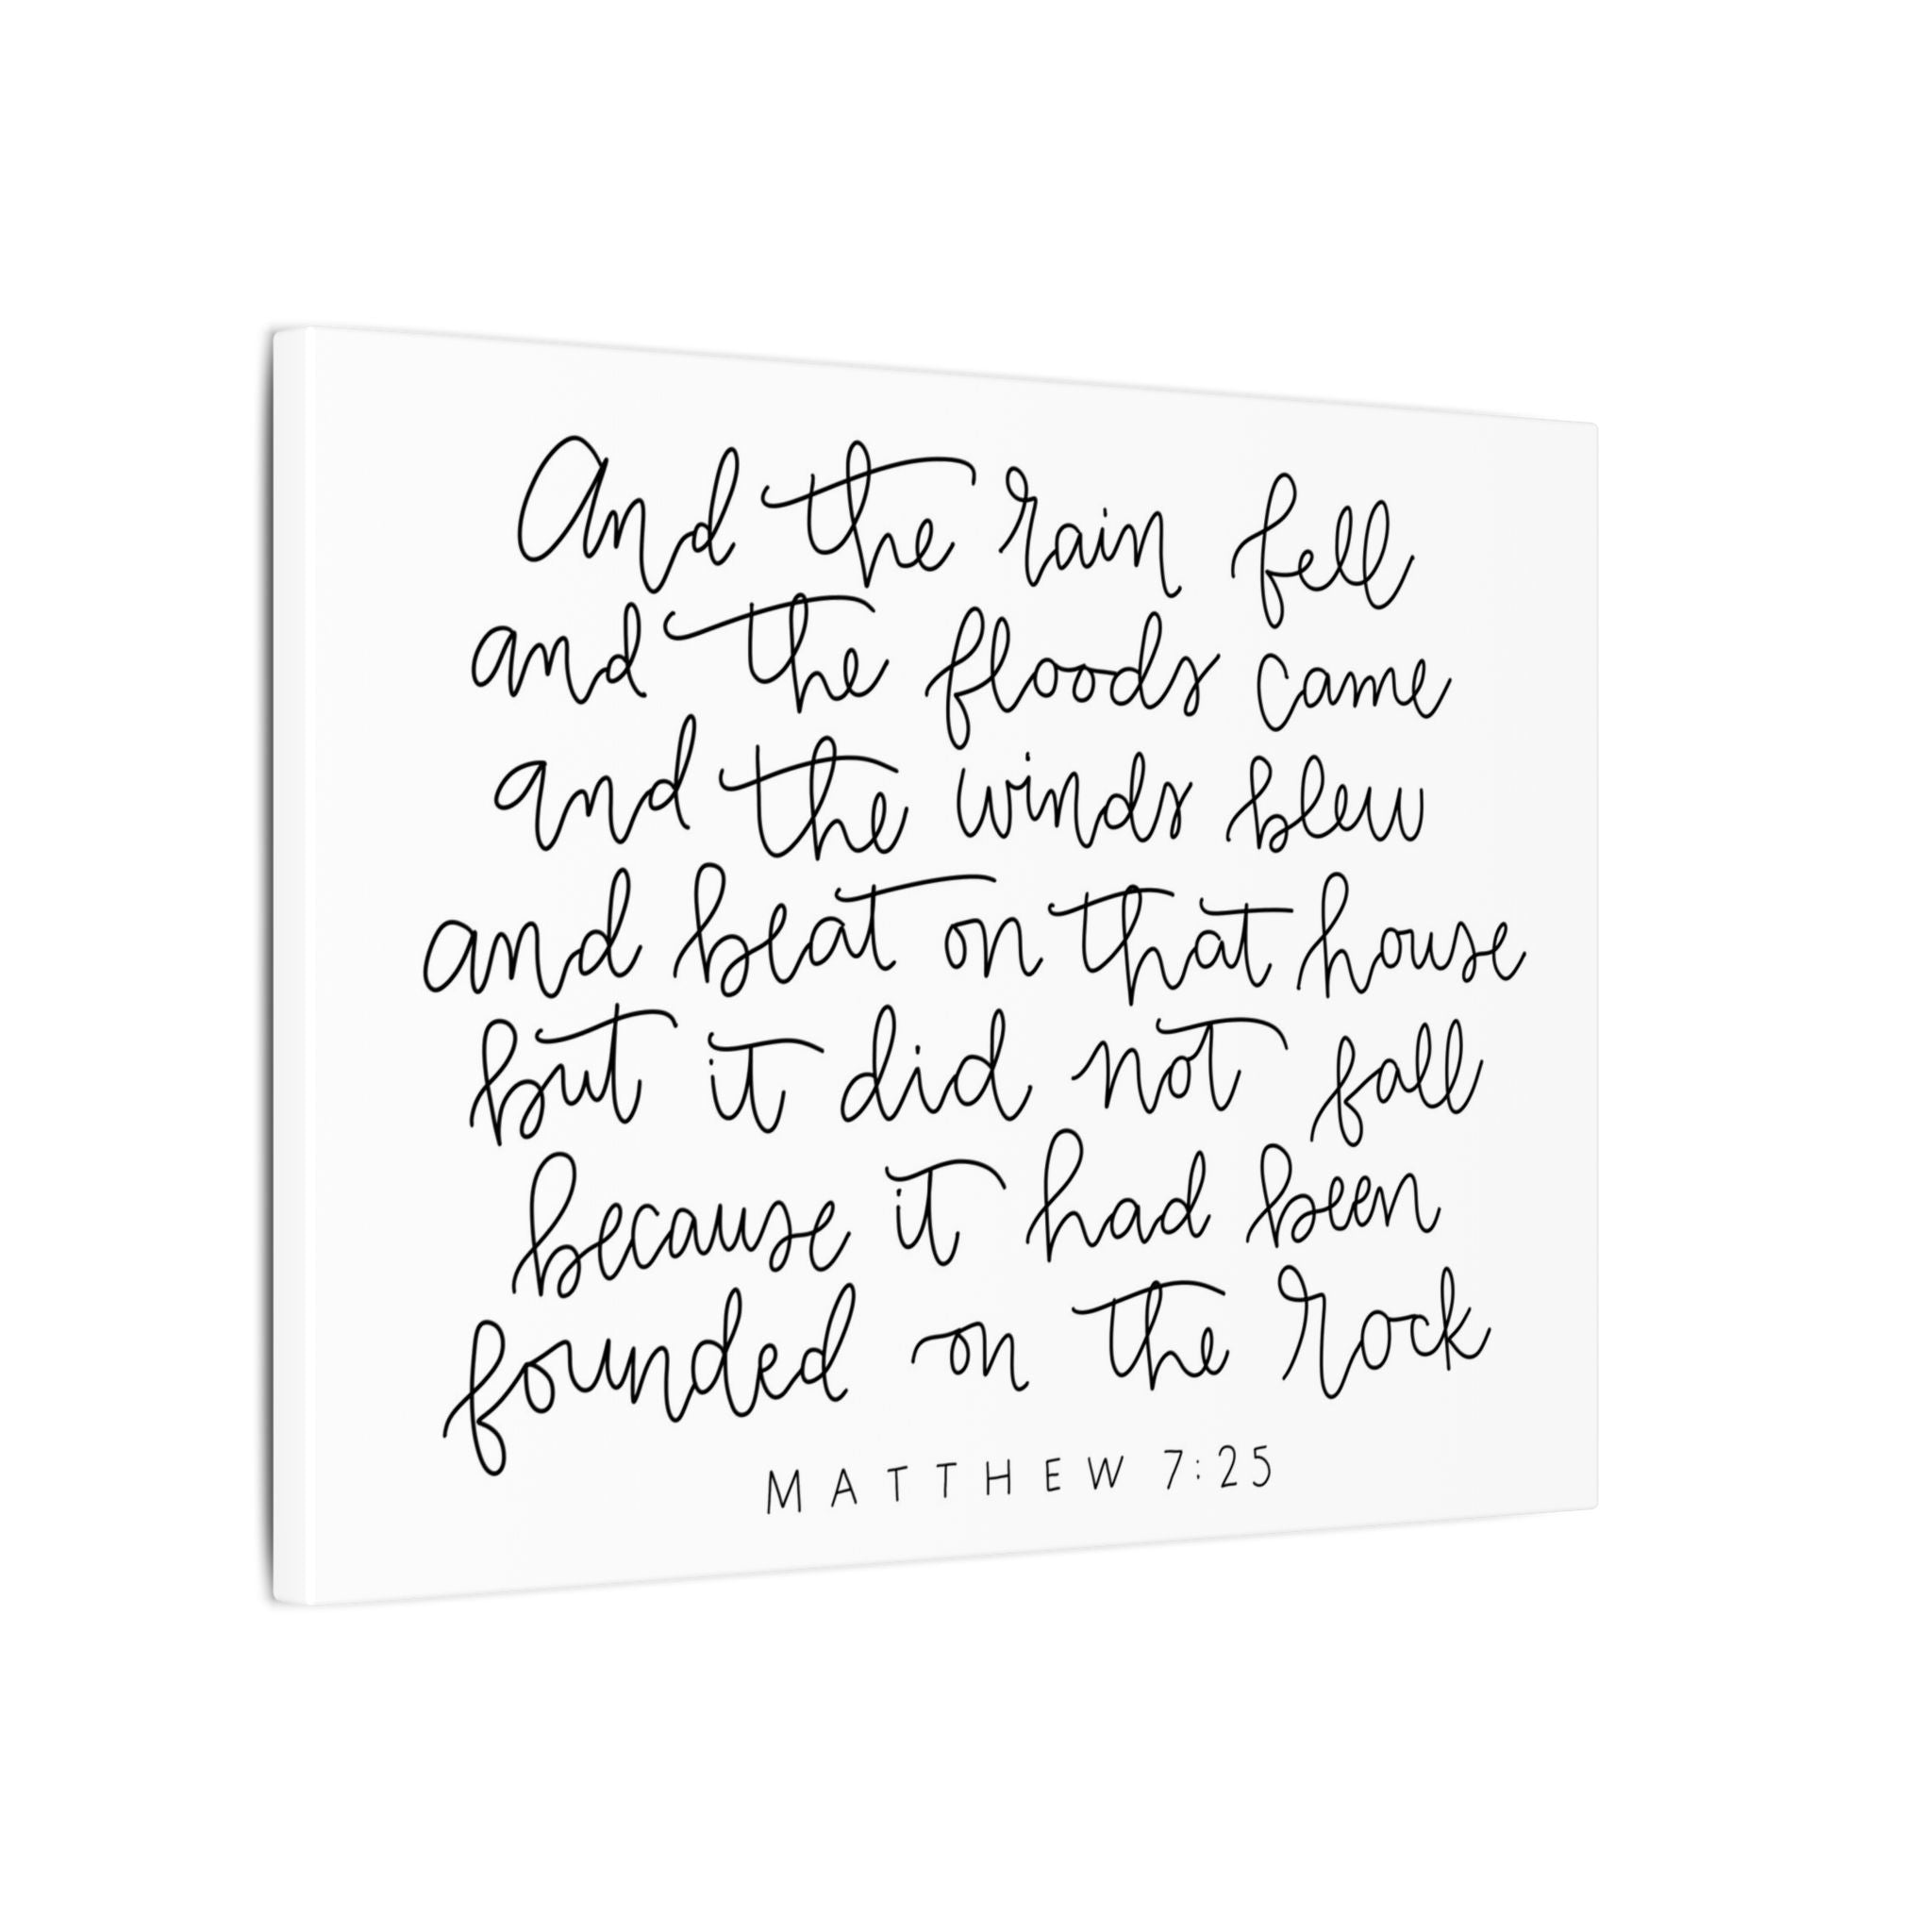 And the rain fell
and the floods came
and the winds blew
and beat on that house
but it did not fall
because it had been
founded on the rock
MATTHEW 7:25